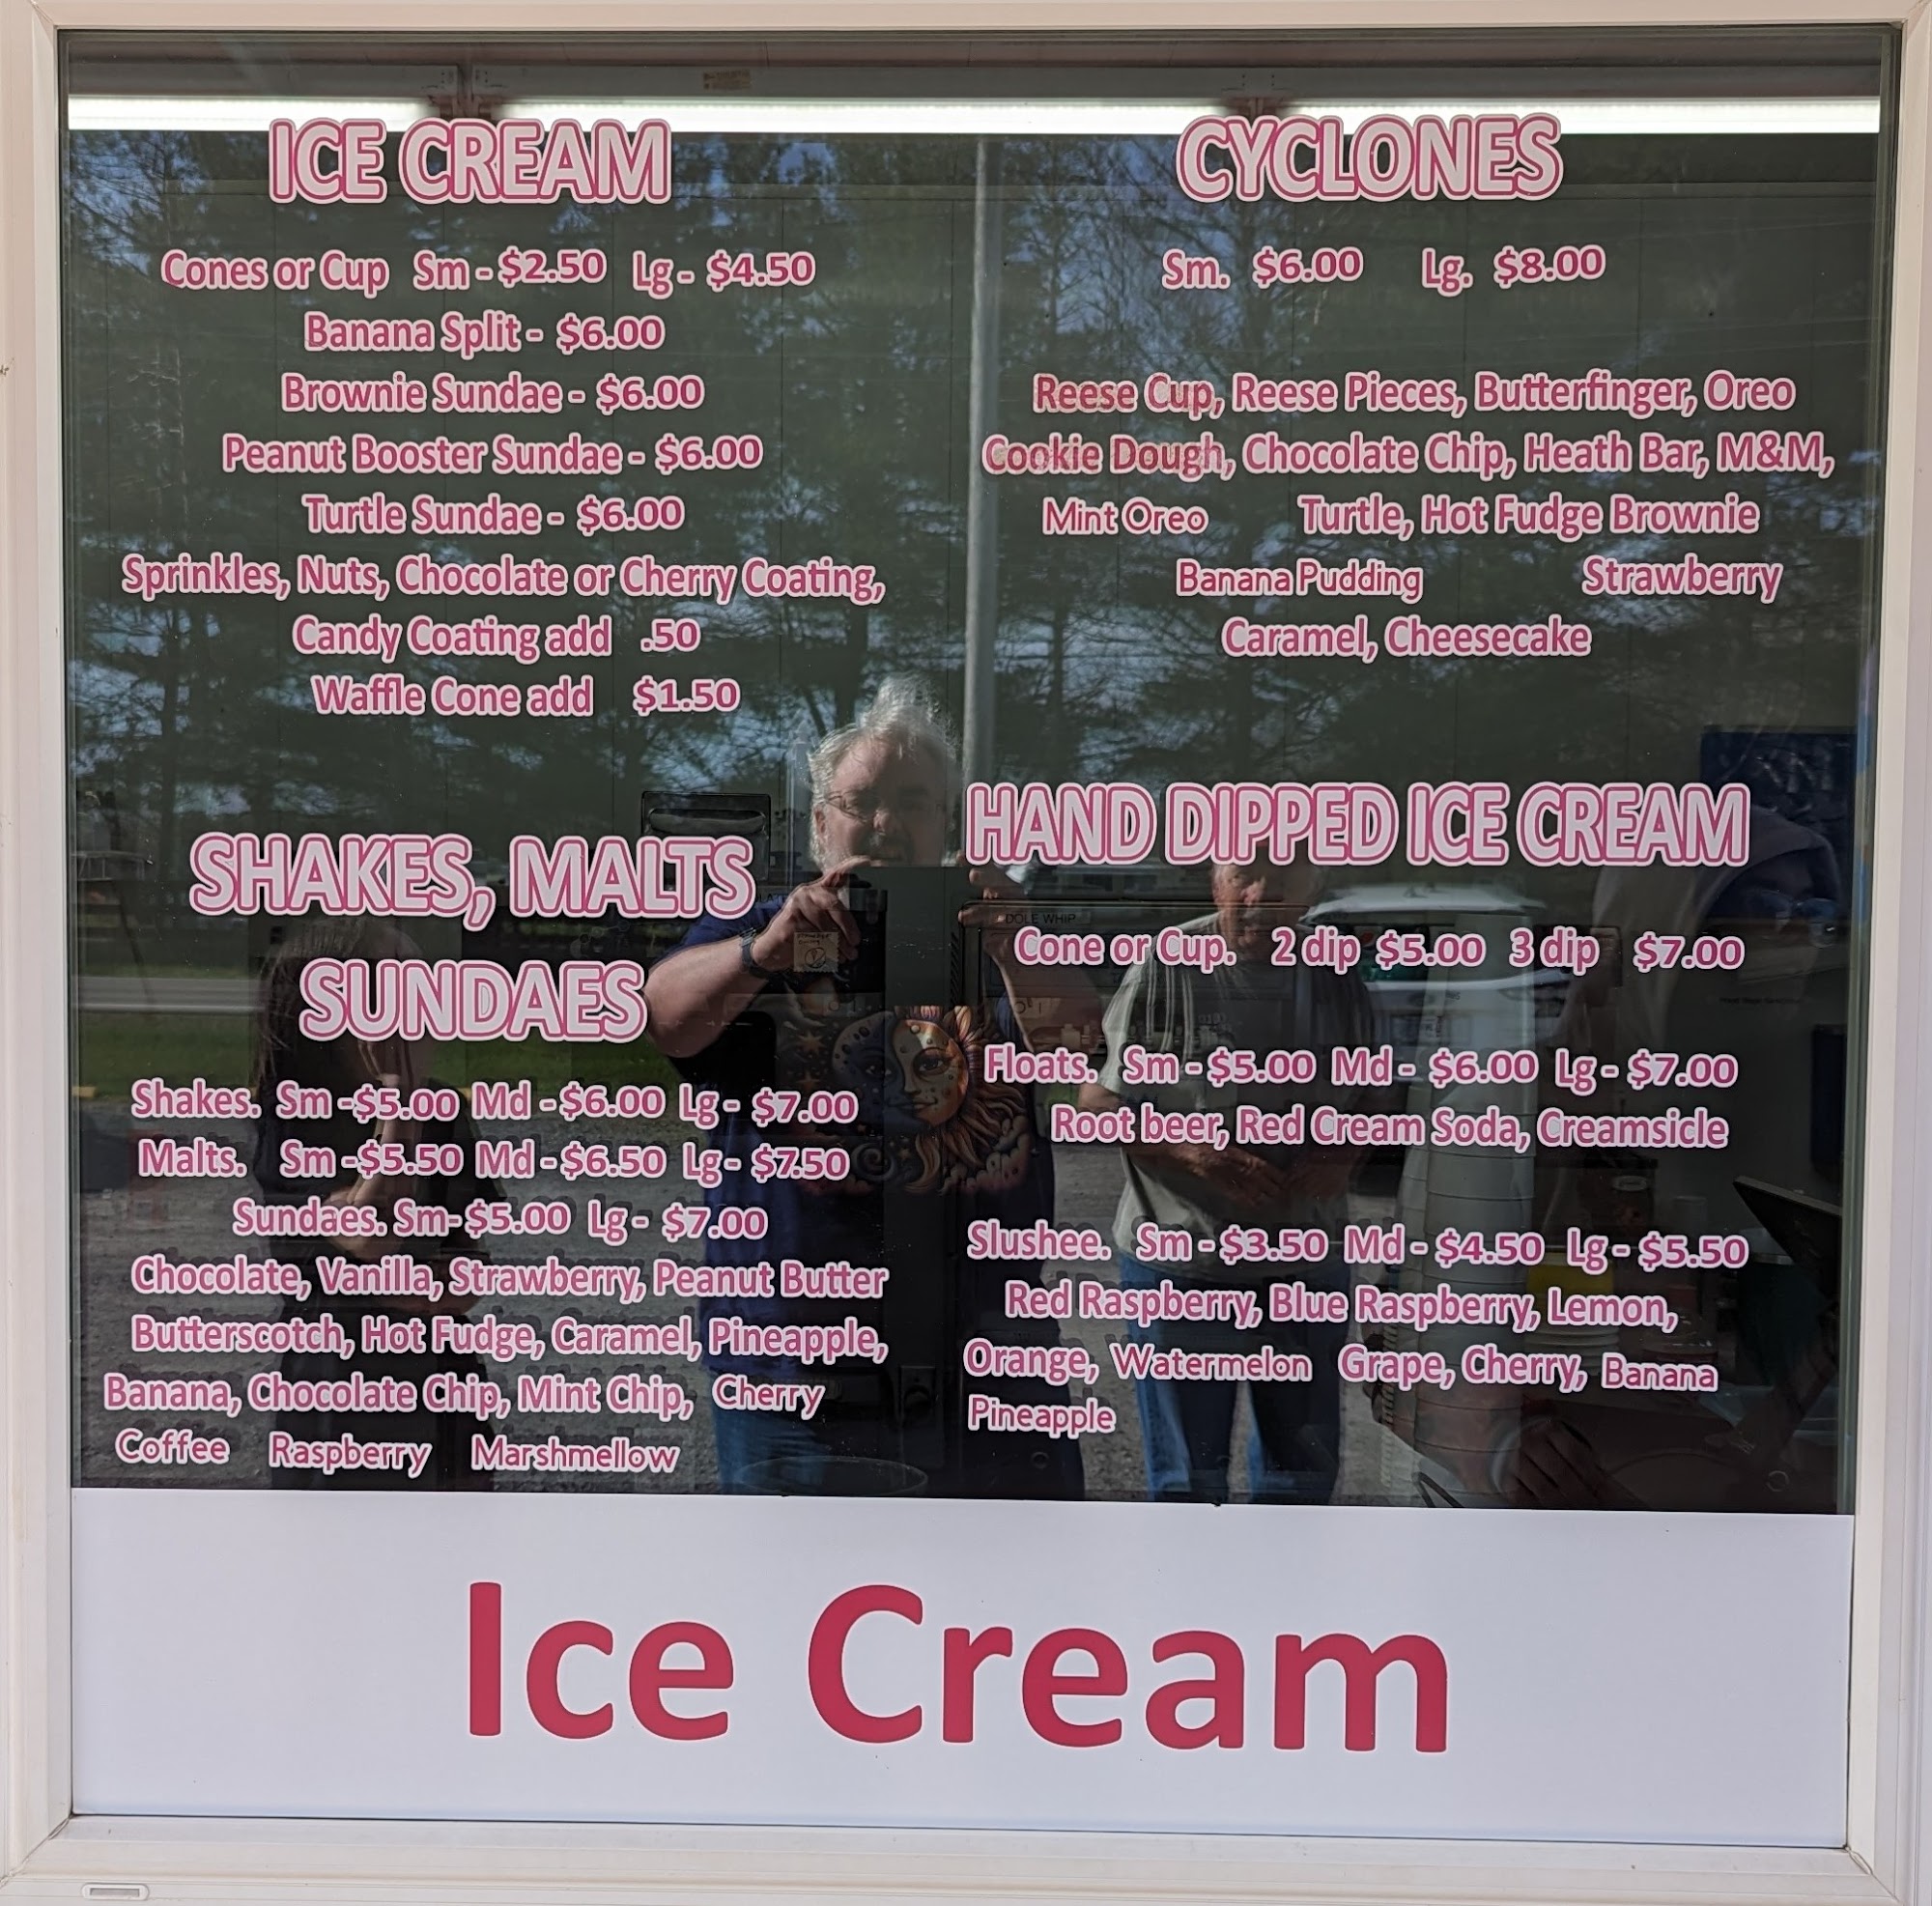 ICE CREAM
Cones or Cup Sm - $2.50 Lg - $4.50
Banana Split - $6.00
Brownie Sundae - $6.00
Peanut Booster Sundae - $6.00
Turtle Sundae - $6.00
Sprinkles, Nuts, Chocolate or Cherry Coating,
Candy Coating add .50
Waffle Cone add $1.50
SHAKES, MALTS
SUNDAES
Shakes. Sm -$5.00 Md -$6.00 Lg - $7.00
Malts. Sm -$5.50 Md -$6.50 Lg - $7.50
Sundaes. Sm- $5.00 Lg - $7.00
Chocolate, Vanilla, Strawberry, Peanut Butter
Butterscotch, Hot Fudge, Caramel, Pineapple,
Banana, Chocolate Chip, Mint Chip, Cherry
Coffee Raspberry Marshmellow
CYCLONES
Sm. $6.00 Lg. $8.00
Reese Cup, Reese Pieces, Butterfinger, Oreo
Cookie Dough, Chocolate Chip, Heath Bar, M&M,
Mint Oreo Turtle, Hot Fudge Brownie
Banana Pudding Strawberry
Caramel, Cheesecake
HAND DIPPED ICE CREAM
DOLE WHIP
Cone or Cup. 2 dip $5.00 3 dip $7.00
Floats. Sm - $5.00 Md - $6.00 Lg - $7.00
Root beer, Red Cream Soda, Creamsicle
Slushee. Sm - $3.50 Md - $4.50 Lg - $5.50
Red Raspberry, Blue Raspberry, Lemon,
Orange, Watermelon Grape, Cherry, Banana
Pineapple
Ice Cream